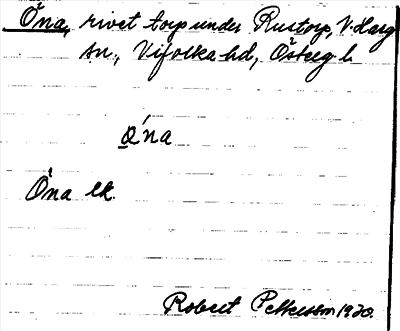 Öna, rivet torp under Rustorp, V. Harg
sn., Vifolka hd, Östergl.
ö́na
Öna ek.
Robert Pettersson 1920.